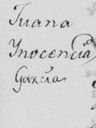 Juana
Ynocencia
Garcia